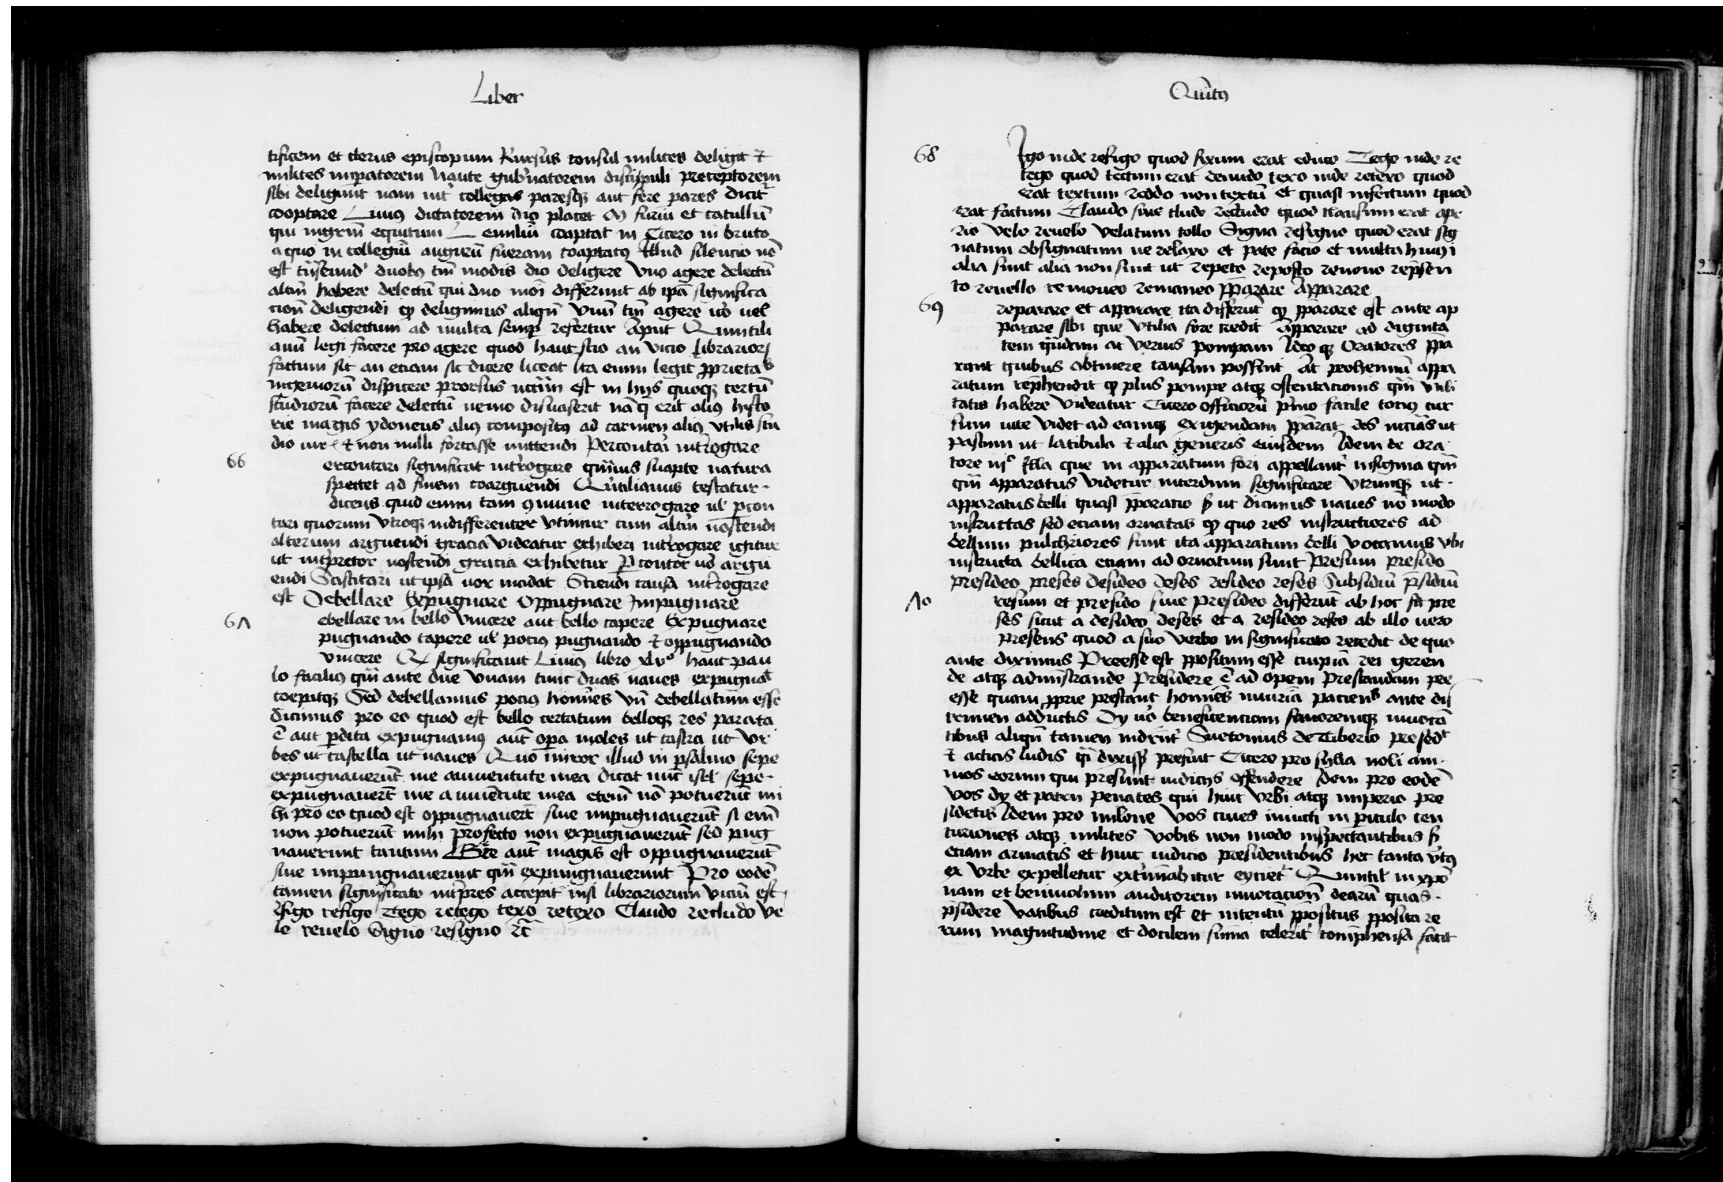 Liber
tificem et clerus episcopum Rursus consul milites deligit et
milites imꝑatorem Naute gub'natorem discipuli preceptorem
sibi deligunt nam int' collegas paresqꝫ aut fere pares dicit'
cooptare Liuiꝰ dictatorem dici placet M furiu et catullū
qui mgrm̄ equitum L emiliū cooptat m Cicero in bruto
a quo in collegiū augurū fueram cooptatꝰ Illud silencio nō
est duobꝫ tm̄ modis dici deligere Vno agere delectū
altm̄ habere delectū qui duo modi differunt ab ipā significa
cioni deligendi qꝫ deligimus aliqn̄ Vnū tm̄ agere uō uel
habere delectum ad multa semꝑ refertur Aput Quintili
anū legi facere pro agere quod haut scio an vicio librarioꝝ
factum sit an etiam sic dicere liceat Ita enim legit'
dispicere prorsus est in hijs quoqꝫ certū
studiorū facere delectū nemo disuaserit nā erit aliꝰ histo
rie magis ydoneus aliꝰ compositꝰ ad carmen aliꝰ vtilis stu
dio iur' et non nulli fortasse mittendi Percontari int'rogare
66 ercontari significat int'rogare quāuis suapte natura
spectet ad finem coarguendi Quitilianus testatur
dicens quid enim tam ꝯmune interrogare ul' ꝑcon
tari quorum vtroqꝫ indifferenter vtimur cum altm̄ noscendi
alterum arguendi gracia videatur exhiberi int'rogare igitur
ut int'pretor noscendi gracia exhibetur ꝑcontor uō argu
endi Sciscitari ut ipsā uox indicat Sciendi causā int'rogare
est Debellare Expugnare Oppugnare Impugnare
67 ebellare in bello vincere aut bello capere Expugnare
pugnando capere ul' pocius pugnando et oppugnando
vincere Q significauit Liuius libro haut pau
lo facilius qm̄ ante due Vnam tunc duas naues expugnat
coepitqꝫ Sed debellamus pocius hom̄nes Vn̄ debellatum esse
dicimus pro eo quod est bello certatum belloqꝫ res parata
ē aut ꝑdita expugnamꝰ aūt oꝑa moles ut castra ut vr
bes ut castella ut naues Quo miror illud in psalmo sepe
expugnauerūt me aiuuentute mea dicat nūc isrl' sepe
expugnauerūt me a iuuētute mea etem̄ nō potuerūt mi
hi pro eo quod est oppugnauerūt siue impugnauerūt si em̄
non potuerūt mihi profecto non expugnauerūt sed pug
nauerunt tantum aūt magis est oppugnauerūt
siue impungnauerunt qm̄ expungnauerunt Pro eodē
tamen significato int'pres accepit nisi librariorum viciū est
ifigo refigo Tego retego texo retexo Claudo recludo Ve
lo reuelo Signo resigno ꝛc̄
Quītꝰ
68 Igo inde refigo quod fixum erat educo Tego inde re
tego quod tectum erat denudo texo inde retexo quod
erat textum reddo non textū et quasi infectum quod
erat factum Claudo siue cludo recludo quod clausum erat ape
rio Velo reuelo velatum tollo Signa resigno quod erat sig
natum obsignatum ue relaxo et pate facio et multa huiꝰi
alia sunt alia non sunt ut repeto reposco renouo repsen
to reuello remoueo remaneo Preparare Apparare
69 reparare et apparare ita differūt qꝫ pꝑarare est ante ap
parare sibi que vtilia fore credit Apparare ad diginta
tem qūdam ac verius pompam Ideo qꝫ Oratores ppa
rant quibus obtinere causam possint At prohemiū appa
ratum rep̄hendit qꝫ plus pompe atqꝫ ostentacionis qm̄ vtili
tatis habere videatur Cicero officiorū pīmo facile tociꝰ cur
sum uite videt ad eamqꝫ exigendam pꝑarat res nēcīas ut
pastum ut latibula et alia generis eiusdem Idem de Ora
tore iijº Illa que in apparatum fori appellant' insignia qm̄
qm̄ apparatus videtur interdum significare vtrumqꝫ ut
apparatus belli quasi pꝑaracio ut dicimus naues nō modo
instructas sed eciam ornatas qꝫ quo res instructiores ad
bellum pulchriores sunt ita apparatum belli vocamus vbi
instructa bellica etiam ad ornatum sunt Presum presido
presideo preses desideo deses resideo reses Subsidiū psidiū
70 resum et presido siue presideo differūt ab hoc fit pre
ses sicut a desideo deses et a resideo reses ab illo uero
presens quod a suo verbo in significato recedit de quo
ante diximus Preesse est ppositum esse cuipia rei geren
de atqꝫ admīstrande Presidere ē ad opem prestandum pre
esse quam pprie prestant hom̄nes iniuriā pacien' ante dis
crimen adductis Dij uō beneficenciam fauoremqꝫ inuocā
tibus aliqn̄ tamen indr̄nt' Suetonius de Tiberio presed't
et acticis ludis prefuit Cicero pro sylla noli ani
mos eorum qui presunt iudicijs offendere Idem pro eodē
vos dij et patrij penates qui huic vrbi atqꝫ imperio pre
sidetis Idem pro milone Vos ciues inuicti in periculo cen
turiones atqꝫ milites Vobis non modo inspectantibus
etiam armatis et huic iudicio presidentibus hec tanta v'tꝰ
ex Vrbe expelletur exterminabitur eyciet' Quintil' in xpō
nam et beniuolum auditorem inuocacioni dearū quas
presidere vatibus creditum est et intentū ppositus pposita re
rum magnitudine et docilem summa celerit' comp̄hensa facit